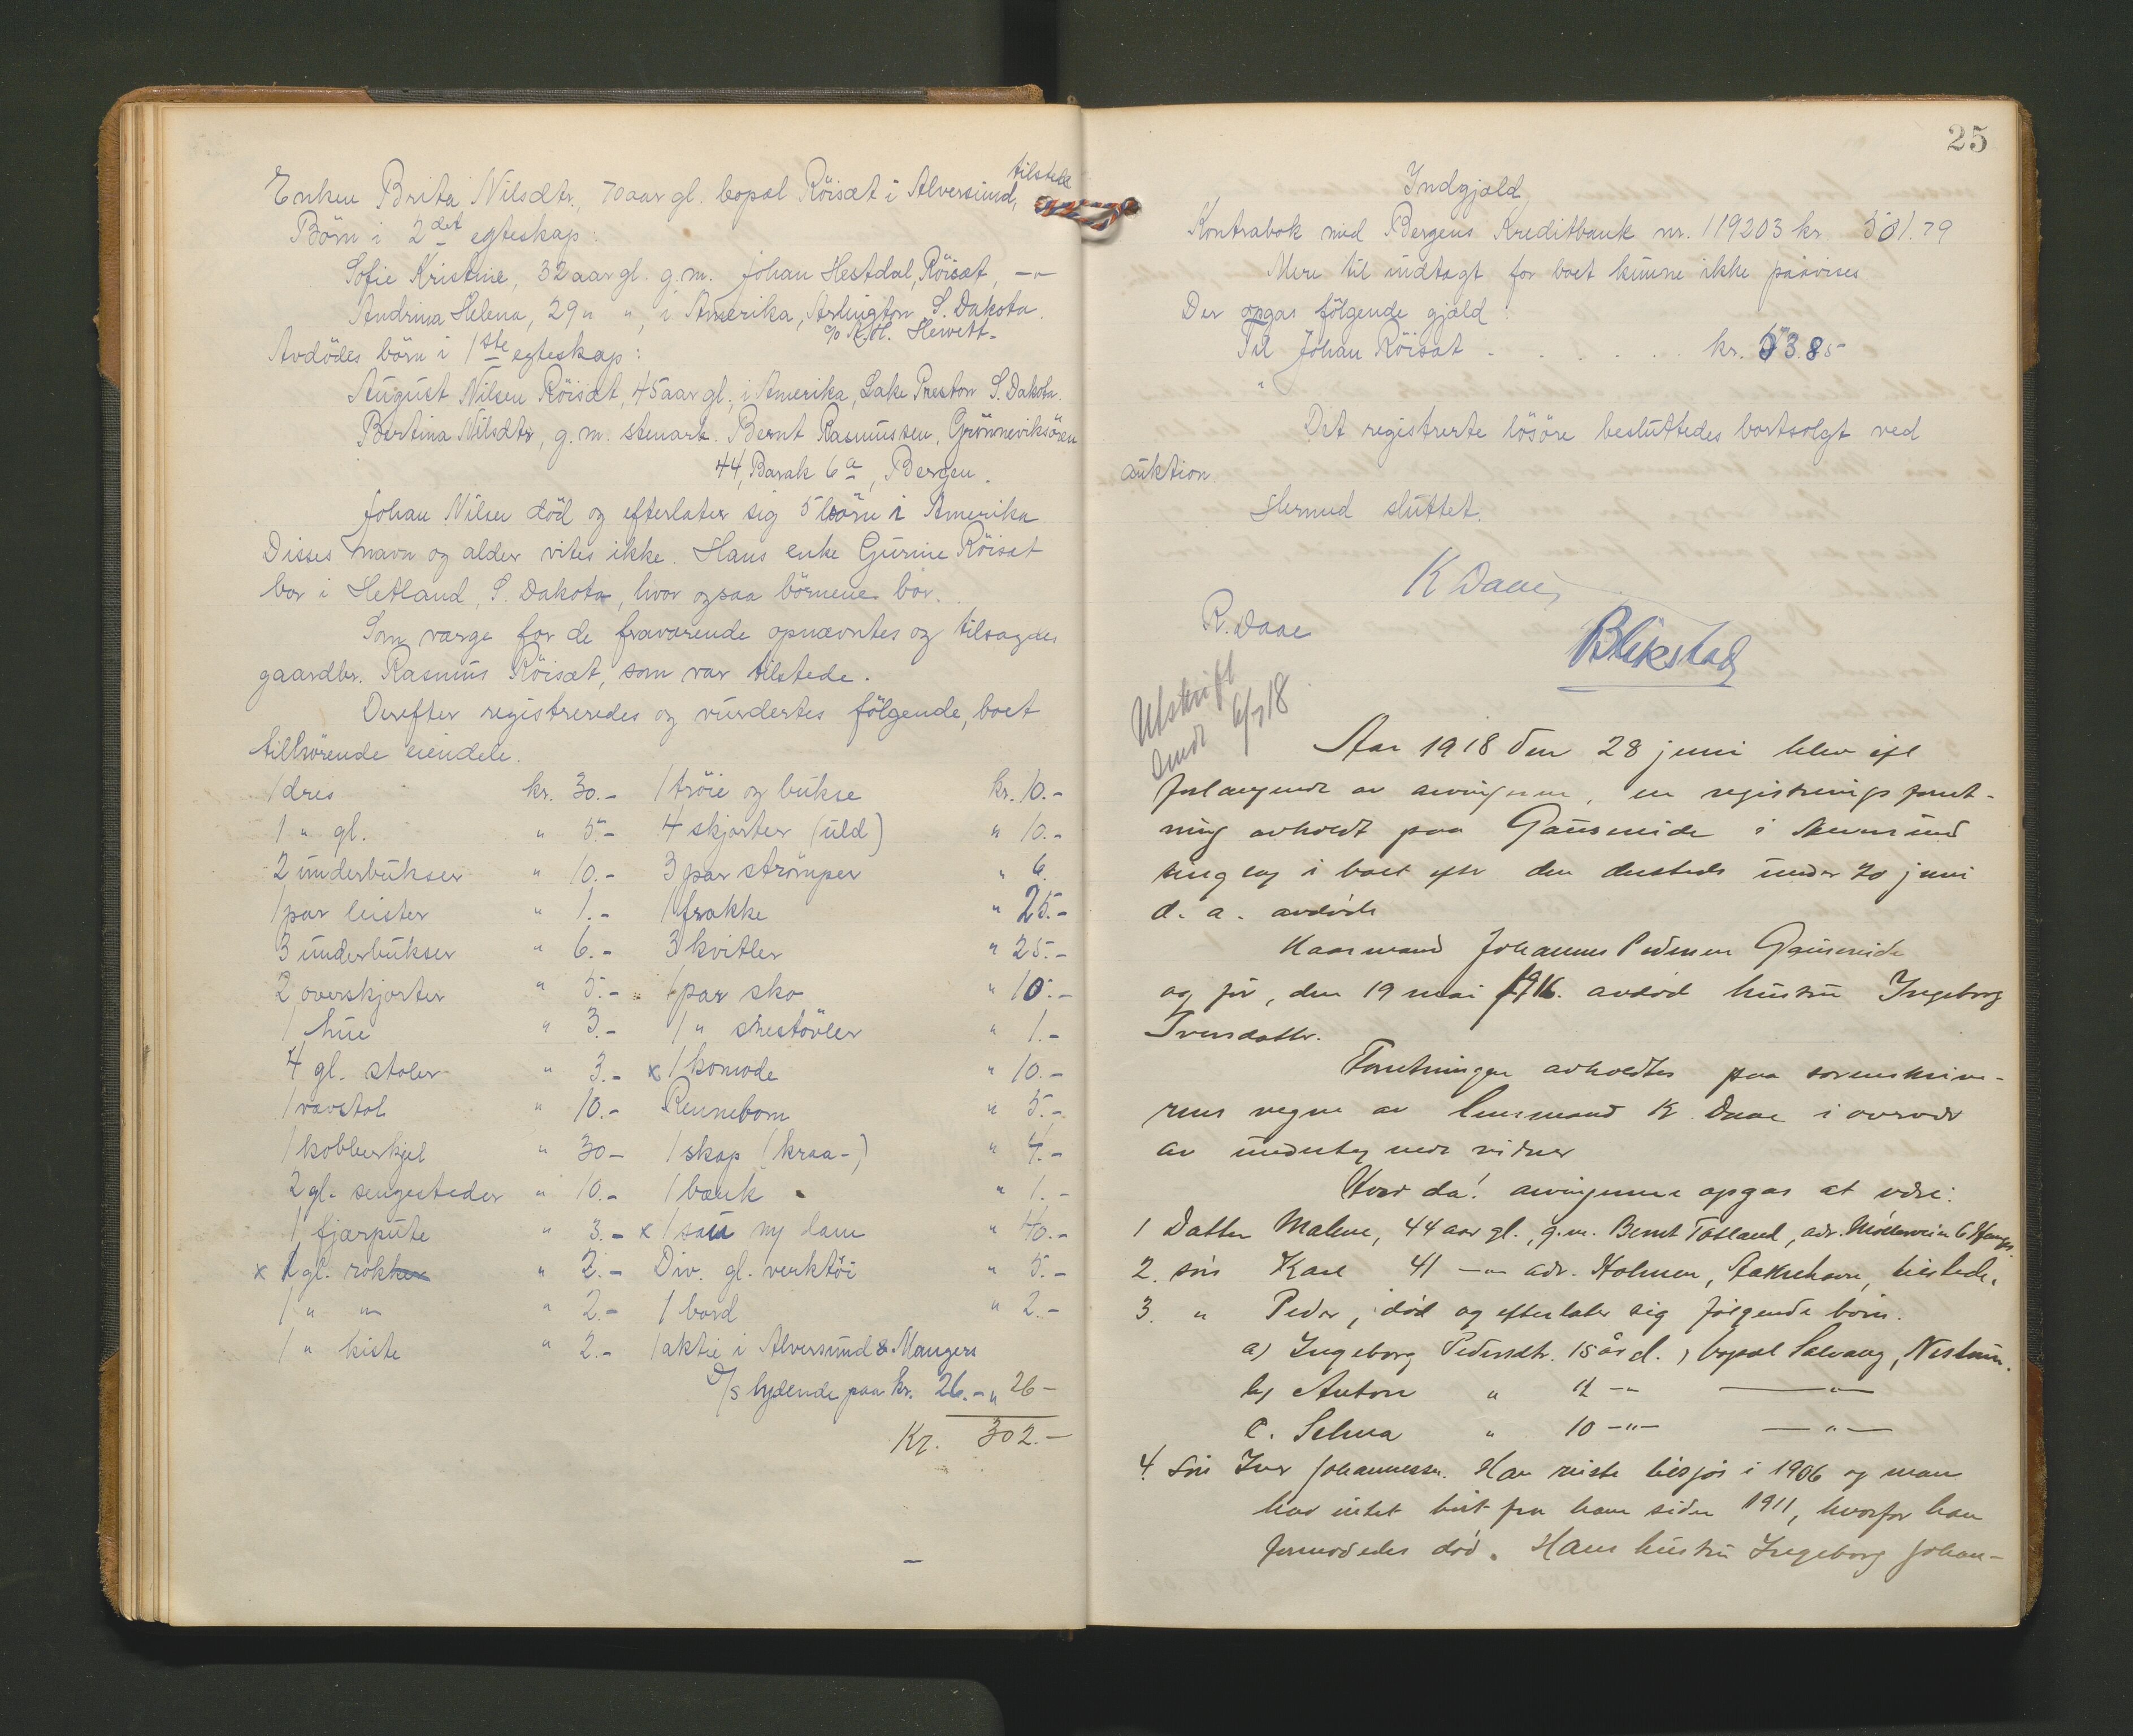 Enken Brita Nilsdtr., 70 aar gl. bopæl Röisæt i Alversund, tilstede
Börn i 2det egteskap:
Sofie Kristine, 32 aar gl. g.m. Johan Hestdal, Röisæt, -"-
Andrina Helena, 29 " ", i Amerika, Arlington S. Dakota.
c/o K.H. Hewett.
Avdödes börn i 1ste egteskap:
August Nilsen Röisæt, 45 aar gl., i Amerika, Lake Preston S. Dakota.
Bertina Nilsdtr, g.m. stenarb. Bernt Rasmussen, Grönneviksören
44, Barak 6a, Bergen.
Johan Nilsen död og efterlater sig 5 börn i Amerika
Disses navn og alder vites ikke. Hans enke Gurine Röisæt
bor i Hetland, S. Dakota, hvor ogsaa börnene bor.
Som værge for de fraværende opnævntes og tilsagdes
gaardbr. Rasmus Röisæt, som var tilstede.
Derefter registreredes og vurdertes fölgende, boet
tilhörende eiendele.
1 dres kr. 30.- 1 tröie og bukse kr. 10.-
1 " gl. " 5.- 4 skjorter (uld) " 10.-
2 underbukser " 10.- 3 par strömper " 6.
1 par leister " 1.- 1 frakke " 25.-
3 underbukser " 6.- 3 kvitler " 25.-
2 overskjorter " 5.- 1 par sko " 10.-
1 hue " 3.- 1 " snestövler " 1.-
4 gl. stoler " 3.- x 1 komode " 10.-
1 vævstol " 10.- Rennebom " 5.-
1 kobberkjel " 30- 1 skap (kraa-) " 4.-
2 gl. sengesteder " 10.- 1 bænk " 1.-
1 fjærpute " 3.- x 1 sau m/ lam " 40.-
x 1 gl. rokker " 2.- Div. gl. verktöi " 5.-
1 " " " 2.- 1 bord " 2.-
1 " kiste " 2.- 1 aktie i Alversund & Mangers
D/s lydende paa kr. 26.- " 26-
Kr. 302.-
25
Indgjæld
Kontrabok med Bergens Kreditbank nr. 119203 kr 501.79
Mere til indtægt for boet kunne ikke paavises
Der opgas fölgende gjæld:
Til Johan Röisæt . . . . . . kr. 3.85
"
Det registrerte lösöre besluttedes bortsolgt ved
auktion.
Hermed sluttet.
K Daae
R. Daae
Blikstad
Utskrift
sendt 6/7 18
Aar 1918 den 28 juni blev efl
forlangende av arvingerne, en registreringsforret-
ning avholdt paa Gauseneide i Alversund
tinglag i boet efter den dersteds under 20 juni
d. a. avdöde
Kaarmand Johannes Pedersen Gauseneide
og för, den 19 mai 1916. avdöd hustru Ingeborg
Iversdatter.
Forretningen avholdtes paa sorenskrive-
rens vegne av lensmand K. Daae i overvær
av undertegnede vidner
Hvor da! arvingerne opgas at være:
1 Datter Malene, 44 aar gl., g.m. Bernt Totland, adr.
2. sön Karl 41 -"- adr. Holmen, tilstede.
3. " Peder, död og efterlater sig fölgende börn.
a) Ingeborg Pedersdtr. 15 år gl., bopæl Salvang, Nestun.
b) Anton " 12 -"- -"-
c. Selma " 10 -"- -"-
4. Sön Iver Johannessen. Han reiste tilsjös i 1906 og man
har intet hört fra ham siden 1911, hvorfor han
formodedes död. Hans hustru Ingeborg Johan-